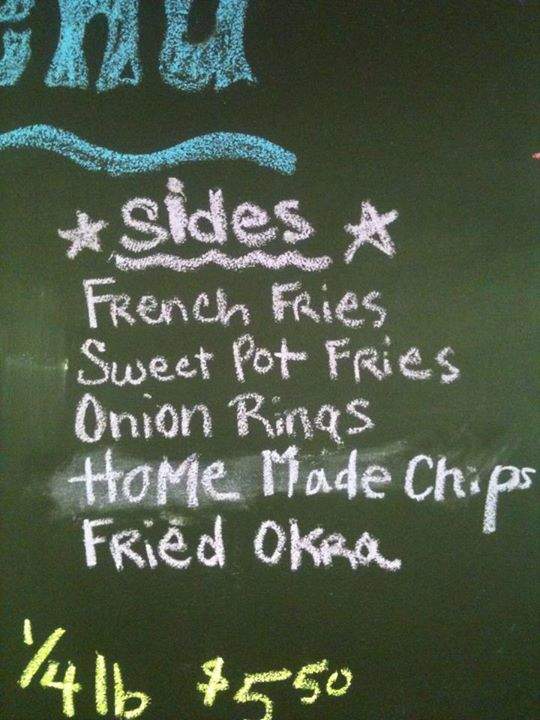 Sides
French Fries
Sweet Pot Fries
Onion Rings
Home Made Chips
Fried Okra
1/4 lb $5.50